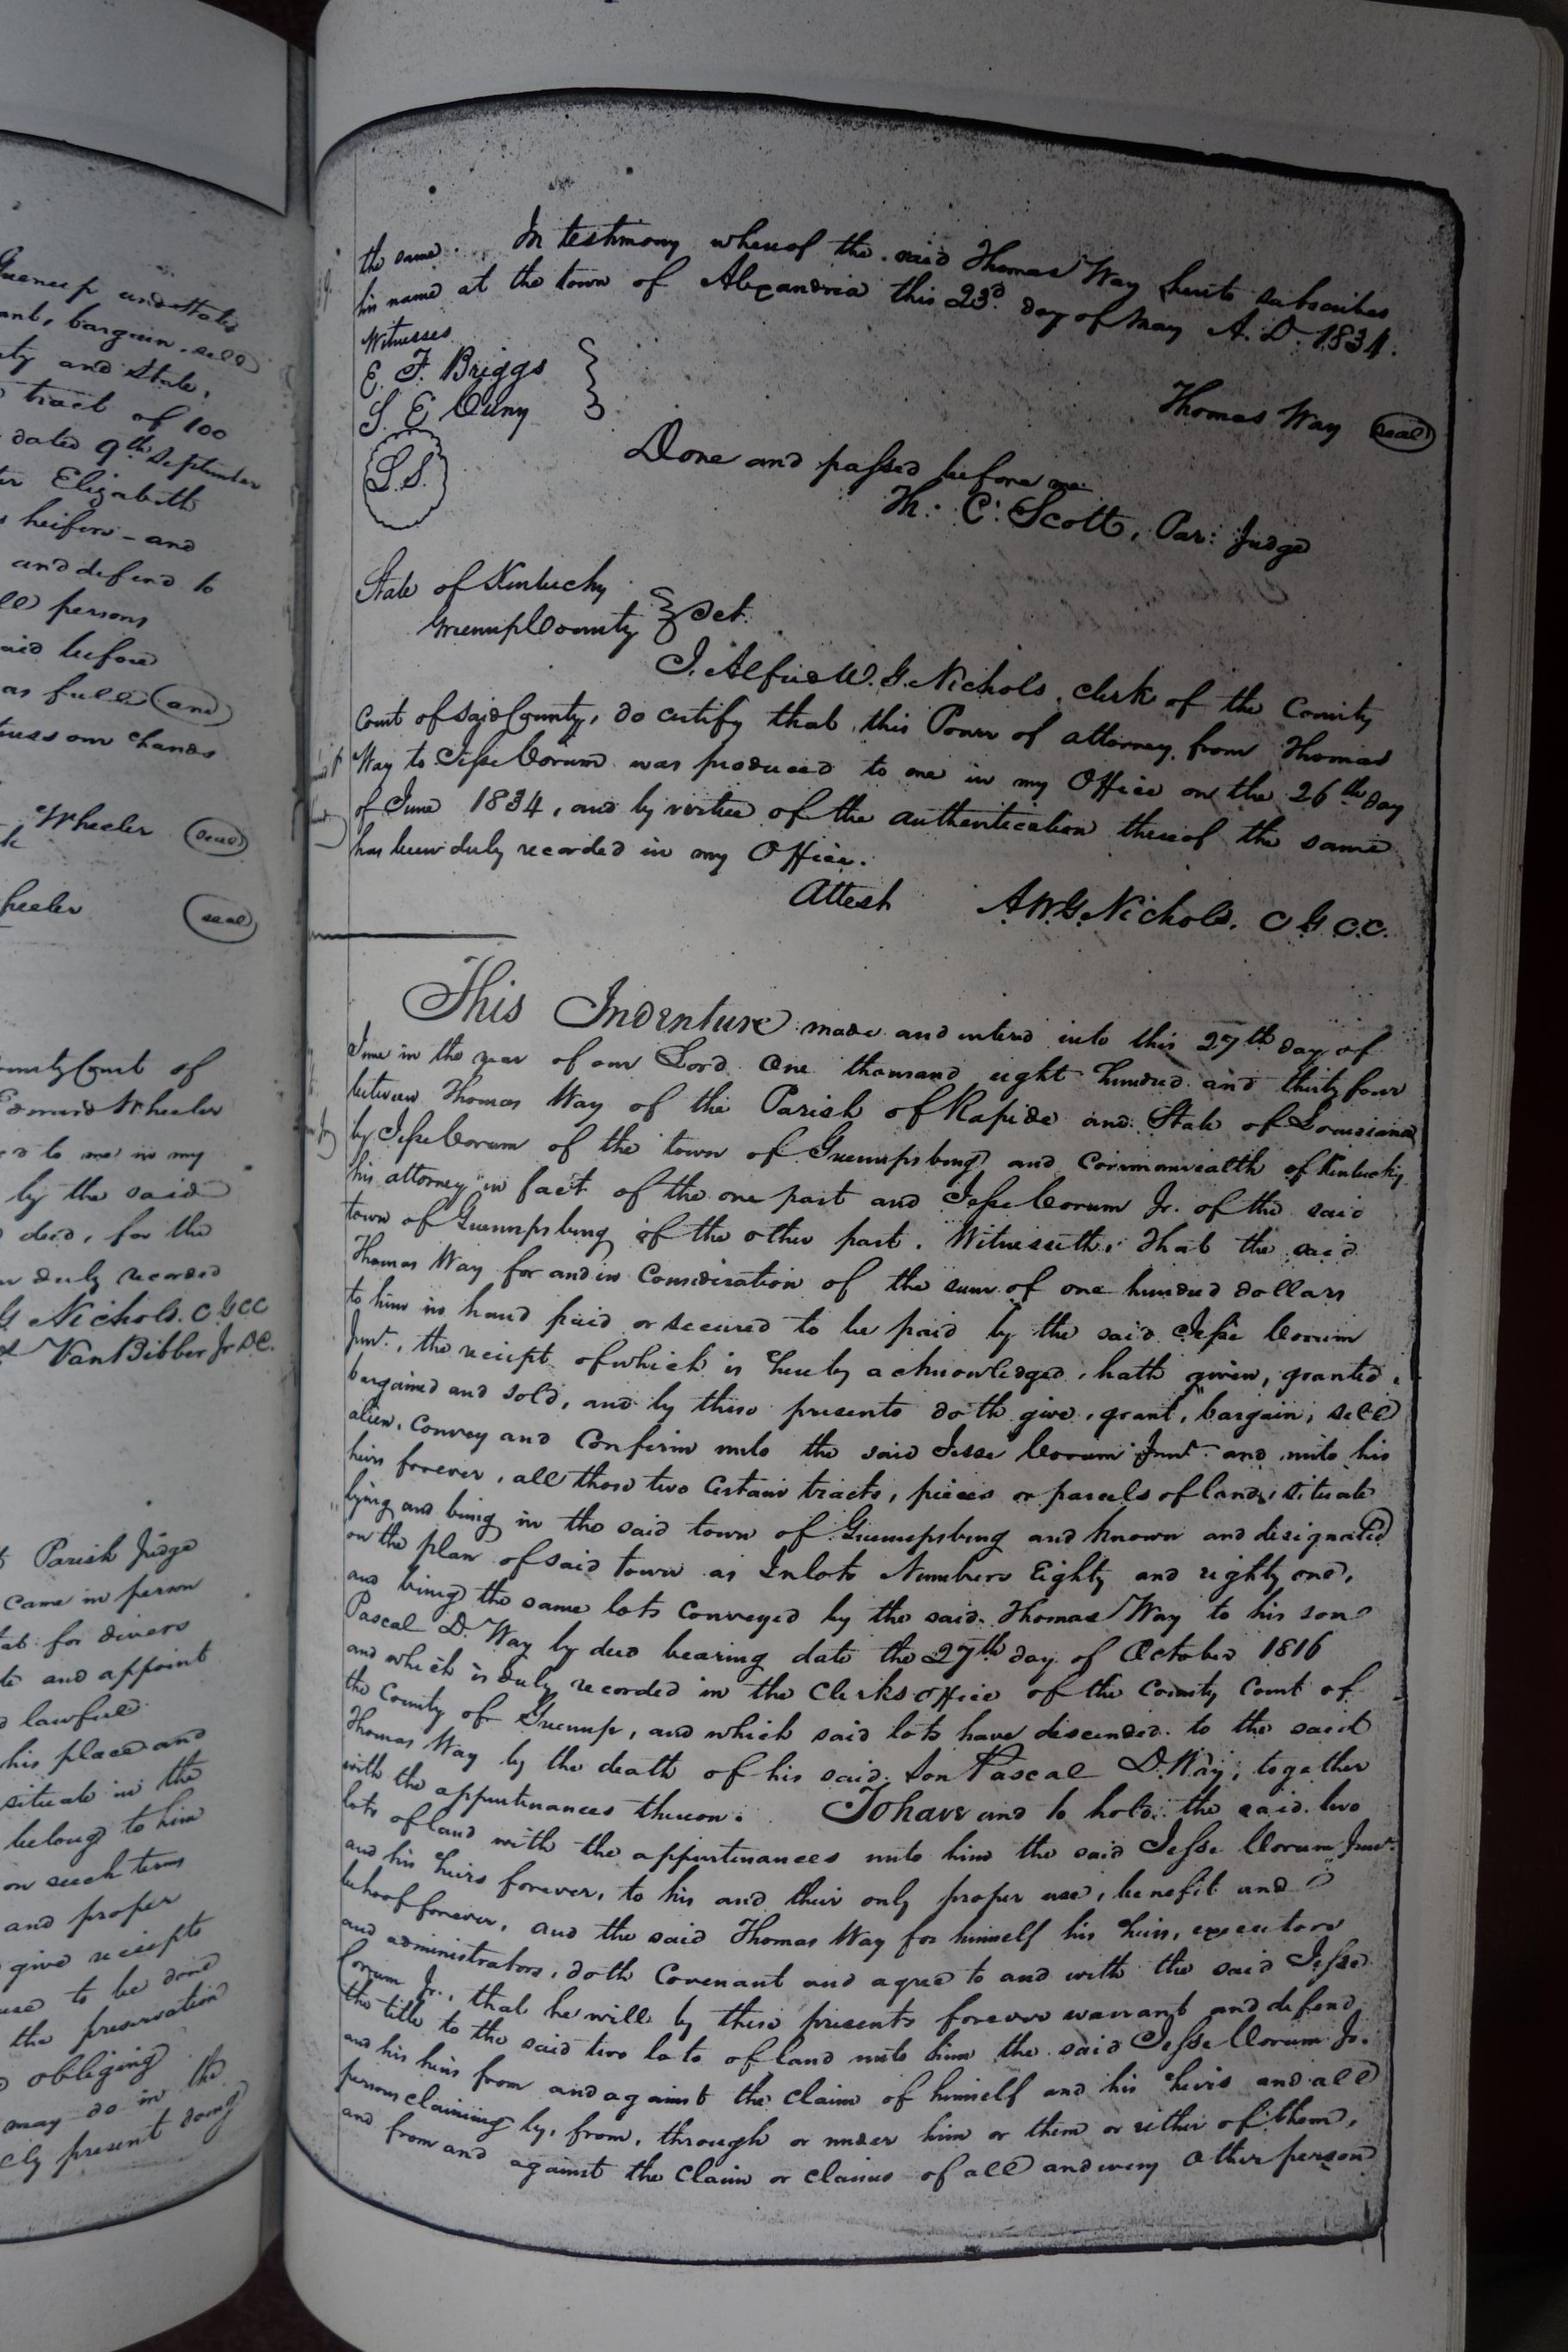 Greenup and State
bargain, sell
ty and State,
tract of 100
dated 9th September
Elizabeth
heifers - and
and defend to
persons
said before
as full and
our hands
Wheeler (seal)
(seal)
County Court of
Edmund Wheeler
ed to me in my
by the said
deed, for the
duly recorded
G Nichols. C G C C
VanBibber Jr D C.
Parish Judge
came in person
that for divers
and appoint
lawful
his place and
situate in the
belong to him
on such terms
and proper
give receipts
to be done
the preservation
obliging
may do in the
present doing
the same. In testimony whereof the said Thomas Way hereto subscribes
his name at the town of Alexandria this 23d. day of May A. D. 1834.
Witnesses
E. F. Briggs
S. E. Cuny
Thomas Way (seal)
L.S.
Done and passed before me
Th: C: Scott, Par: Judge
State of Kentucky
Greenup County Sct.
I. Alfred W. G. Nichols, clerk of the County
Court of said County, do certify that this Power of attorney from Thomas
Way to Jesse Corum was produced to me in my Office on the 26th day
of June 1834, and by virtue of the authentication thereof the same
has been duly recorded in my Office.
Attest A W G Nichols. C G C.C.
This Indenture made and entered into this 27th day of
June in the year of our Lord One thousand eight hundred and thirty four
between Thomas Way of the Parish of Rapide and State of Louisiana
by Jesse Corum of the town of Greenupsburg and Commonwealth of Kentucky
his attorney in fact of the one part and Jesse Corum Jr. of the said
town of Greenupsburg of the other part. Witnesseth, That the said
Thomas Way for and in Consideration of the sum of one hundred dollars
to him in hand paid or secured to be paid by the said Jesse Corum
Junr., the reciept of which is hereby acknowledged, hath given, granted,
bargained and sold, and by these presents doth give, grant, bargain, sell
alien, convey and Confirm unto the said Jesse Corum Junr. and unto his
heirs forever, all those two Certain tracts, pieces or parcels of land, situate
lying and being in the said town of Greenupsburg and known and designated
on the plan of said town as Inlots Numbers Eighty and eighty one,
and being the same lots conveyed by the said Thomas Way to his son
Pascal D. Way by deed bearing date the 27th day of October 1816
and which is duly recorded in the Clerks Office of the County Court of
the County of Greenup, and which said lots have descended to the said
Thomas Way by the death of his said Son Pascal D. Way, together
with the appurtenances thereon. To have and to hold the said two
lots of land with the appurtenances unto him the said Jesse Corum Junr.
and his heirs forever, to his and their only proper use, benefit and
behoof forever, and the said Thomas Way for himself his heirs, executors
and administrators, doth Covenant and agree to and with the said Jesse
Corum Jr., that he will by these presents forever warrant and defend
the title to the said two lots of land unto him the said Jesse Corum Jr.
and his heirs from and against the claim of himself and his heirs and all
persons claiming by, from, through or under him or them or either of them,
and from and against the claim or claims of all and every other person